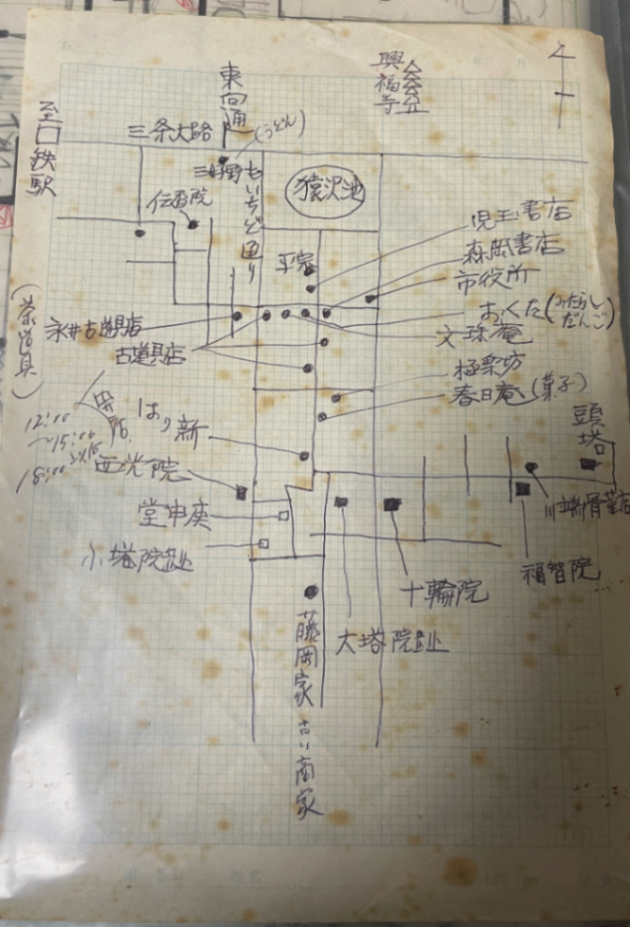 東向通
興福寺
至口鉄駅
三条大路
(うどん)
もいちど通り
猿沢池
伝香院
平宗
児玉書店
森岡書店
市役所
おくた(みたらしだんご)
文珠庵
永井古道具店
古道具店
(茶道具)
極楽坊
春日庵(菓子)
頭塔
12:00
〜15:00
18:00以降
新
西光院
堂申庚
小塔院趾
川端骨董店
福智院
十輪院
大塔院趾
藤岡家 古い商家